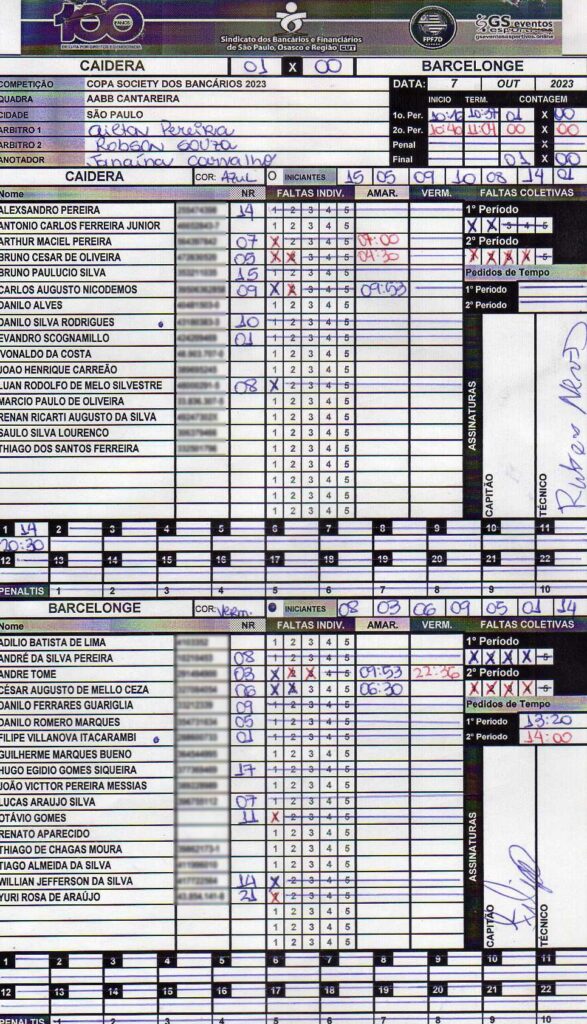 100 ANOS
DE LUTA POR DIREITOS E DEMOCRACIA
Sindicato dos Bancários e Financiários
de São Paulo, Osasco e Região CUT
FPF7D
GS eventos
esportivos
gseventosesportivos.online
CAIDERA 01 X 00 BARCELONGE
COMPETIÇÃO COPA SOCIETY DOS BANCÁRIOS 2023 DATA: 7 OUT 2023
QUADRA AABB CANTAREIRA INICIO TERM. CONTAGEM
CIDADE SÃO PAULO 1o. Per. 10:37 01 X 00
ARBITRO 1 Ailton Pereira 2o. Per. 10:40 11:04 00 X 00
ARBITRO 2 Robson Souza Penal X
ANOTADOR Janaína Carvalho Final 01 X 00
CAIDERA COR: AZUL INICIANTES 15 05 09 10 08 14 01
Nome NR FALTAS INDIV. AMAR. VERM. FALTAS COLETIVAS
ALEXSANDRO PEREIRA 14 1 2 3 4 5 1º Período
ANTONIO CARLOS FERREIRA JUNIOR 1 2 3 4 5 X X 3 4 5
ARTHUR MACIEL PEREIRA 07 X 2 3 4 5 07:00 2º Período
BRUNO CESAR DE OLIVEIRA 05 X X 3 4 5 04:30 X X X X 5
BRUNO PAULUCIO SILVA 15 1 2 3 4 5 Pedidos de Tempo
CARLOS AUGUSTO NICODEMOS 09 X X 3 4 5 09:53 1º Período
DANILO ALVES 1 2 3 4 5 2º Período
DANILO SILVA RODRIGUES 10 1 2 3 4 5
EVANDRO SCOGNAMILLO 01 1 2 3 4 5
IVONALDO DA COSTA 1 2 3 4 5
JOAO HENRIQUE CARREÃO 1 2 3 4 5
LUAN RODOLFO DE MELO SILVESTRE 08 X 2 3 4 5
MARCIO PAULO DE OLIVEIRA 1 2 3 4 5
RENAN RICARTI AUGUSTO DA SILVA 1 2 3 4 5
SAULO SILVA LOURENCO 1 2 3 4 5
THIAGO DOS SANTOS FERREIRA 1 2 3 4 5
1 2 3 4 5
1 2 3 4 5
1 2 3 4 5
1 2 3 4 5
ASSINATURAS
CAPITÃO
TÉCNICO
1 14 2 3 4 5 6 7 8 9 10 11
20:30
12 13 14 15 16 17 18 19 20 21 22
PENALTIS 1 2 3 4 5 6 7 8 9 10
BARCELONGE COR: Verm. INICIANTES 08 03 06 09 05 01 14
Nome NR FALTAS INDIV. AMAR. VERM. FALTAS COLETIVAS
ADILIO BATISTA DE LIMA 1 2 3 4 5 1º Período
ANDRÉ DA SILVA PEREIRA 08 1 2 3 4 5 X X X X 5
ANDRE TOME 03 X X X 4 5 09:53 22:36 2º Período
CÉSAR AUGUSTO DE MELLO CEZA 06 X X 3 4 5 06:30 X X X X 5
DANILO FERRARES GUARIGLIA 09 1 2 3 4 5 Pedidos de Tempo
DANILO ROMERO MARQUES 05 1 2 3 4 5 1º Período 13:20
FILIPE VILLANOVA ITACARAMBI 01 1 2 3 4 5 2º Período 14:00
GUILHERME MARQUES BUENO 1 2 3 4 5
HUGO EGIDIO GOMES SIQUEIRA 17 1 2 3 4 5
JOÃO VICTTOR PEREIRA MESSIAS 1 2 3 4 5
LUCAS ARAUJO SILVA 07 1 2 3 4 5
OTÁVIO GOMES 11 X 2 3 4 5
RENATO APARECIDO 1 2 3 4 5
THIAGO DE CHAGAS MOURA 1 2 3 4 5
TIAGO ALMEIDA DA SILVA 1 2 3 4 5
WILLIAN JEFFERSON DA SILVA 14 X 2 3 4 5
YURI ROSA DE ARAÚJO 21 X 2 3 4 5
1 2 3 4 5
1 2 3 4 5
1 2 3 4 5
ASSINATURAS
CAPITÃO
TÉCNICO
1 2 3 4 5 6 7 8 9 10 11
12 13 14 15 16 17 18 19 20 21 22
PENALTIS 1 2 3 4 5 6 7 8 9 10